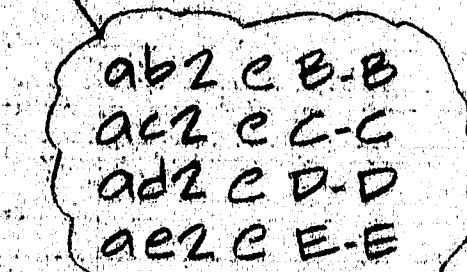 ab2 @ B-B
ac2 @ C-C
ad2 @ D-D
ae2 @ E-E